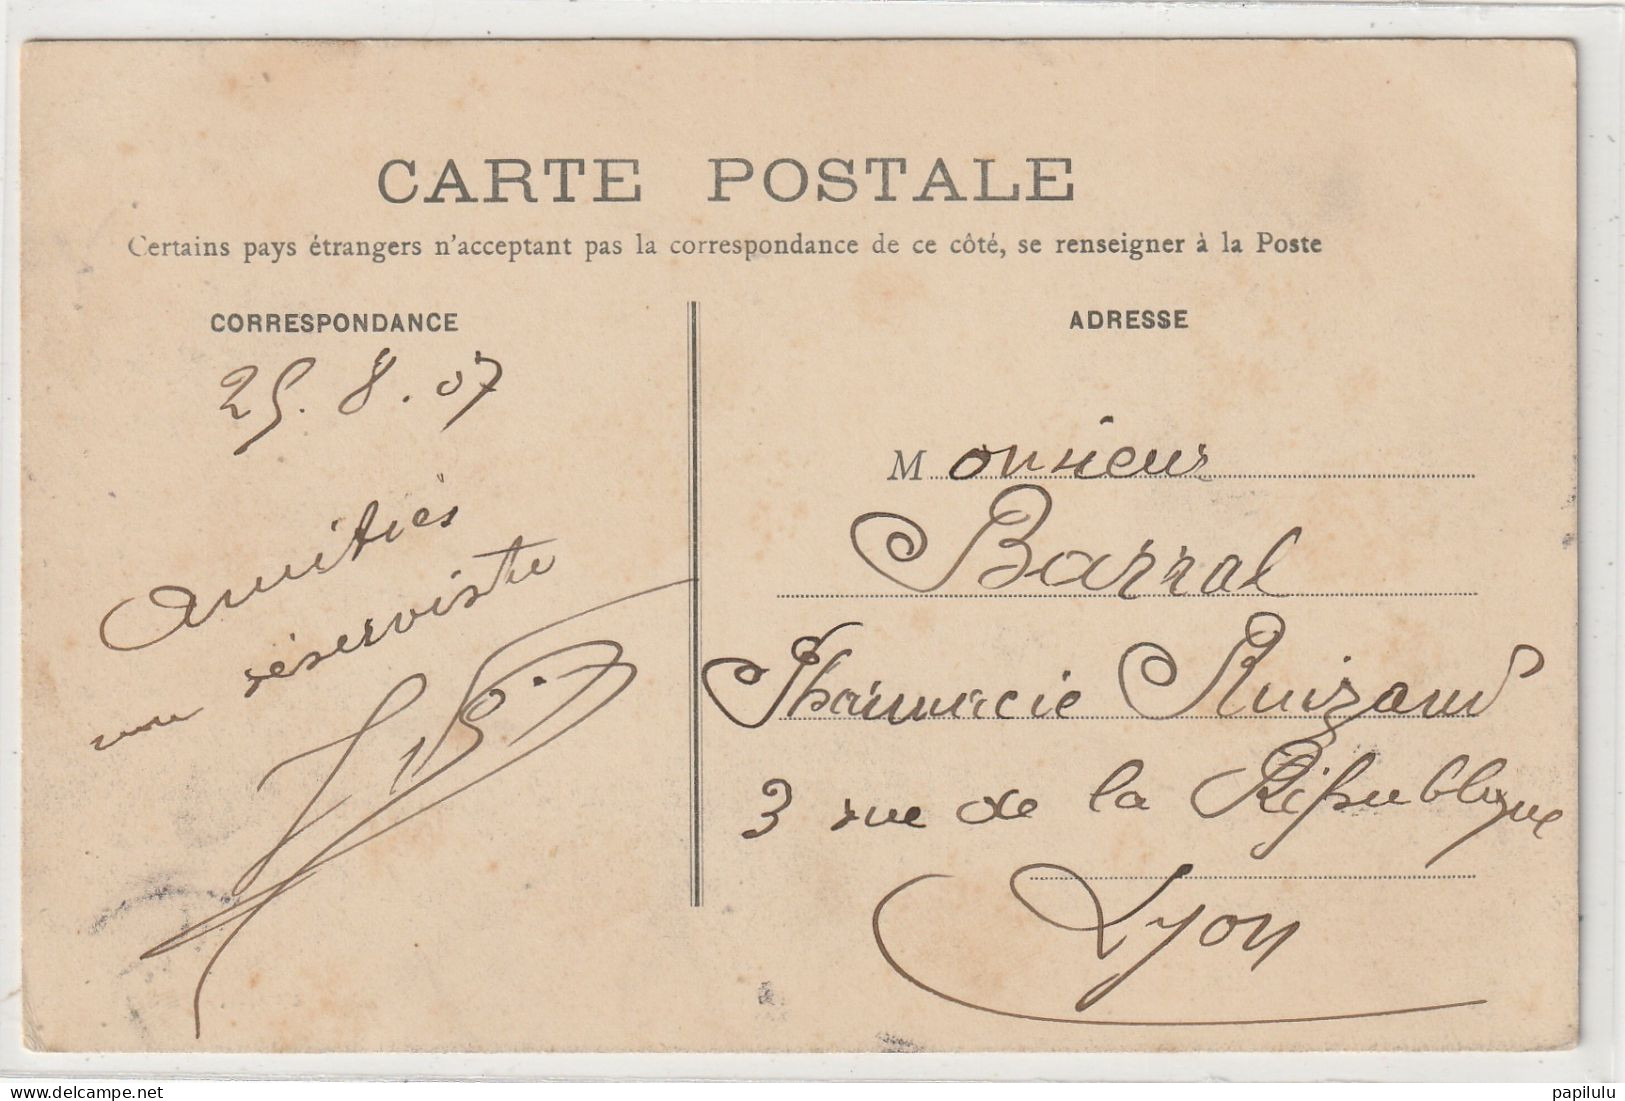 CARTE POSTALE
Certains pays étrangers n'acceptent pas la correspondance de ce côté, se renseigner à la Poste
CORRESPONDANCE
25.8.07
Amitiés
réserviste
ADRESSE
Monsieur
Barral
Pharmacie Ruizand
3 rue de la République
Lyon
papilulu
delcampe.net